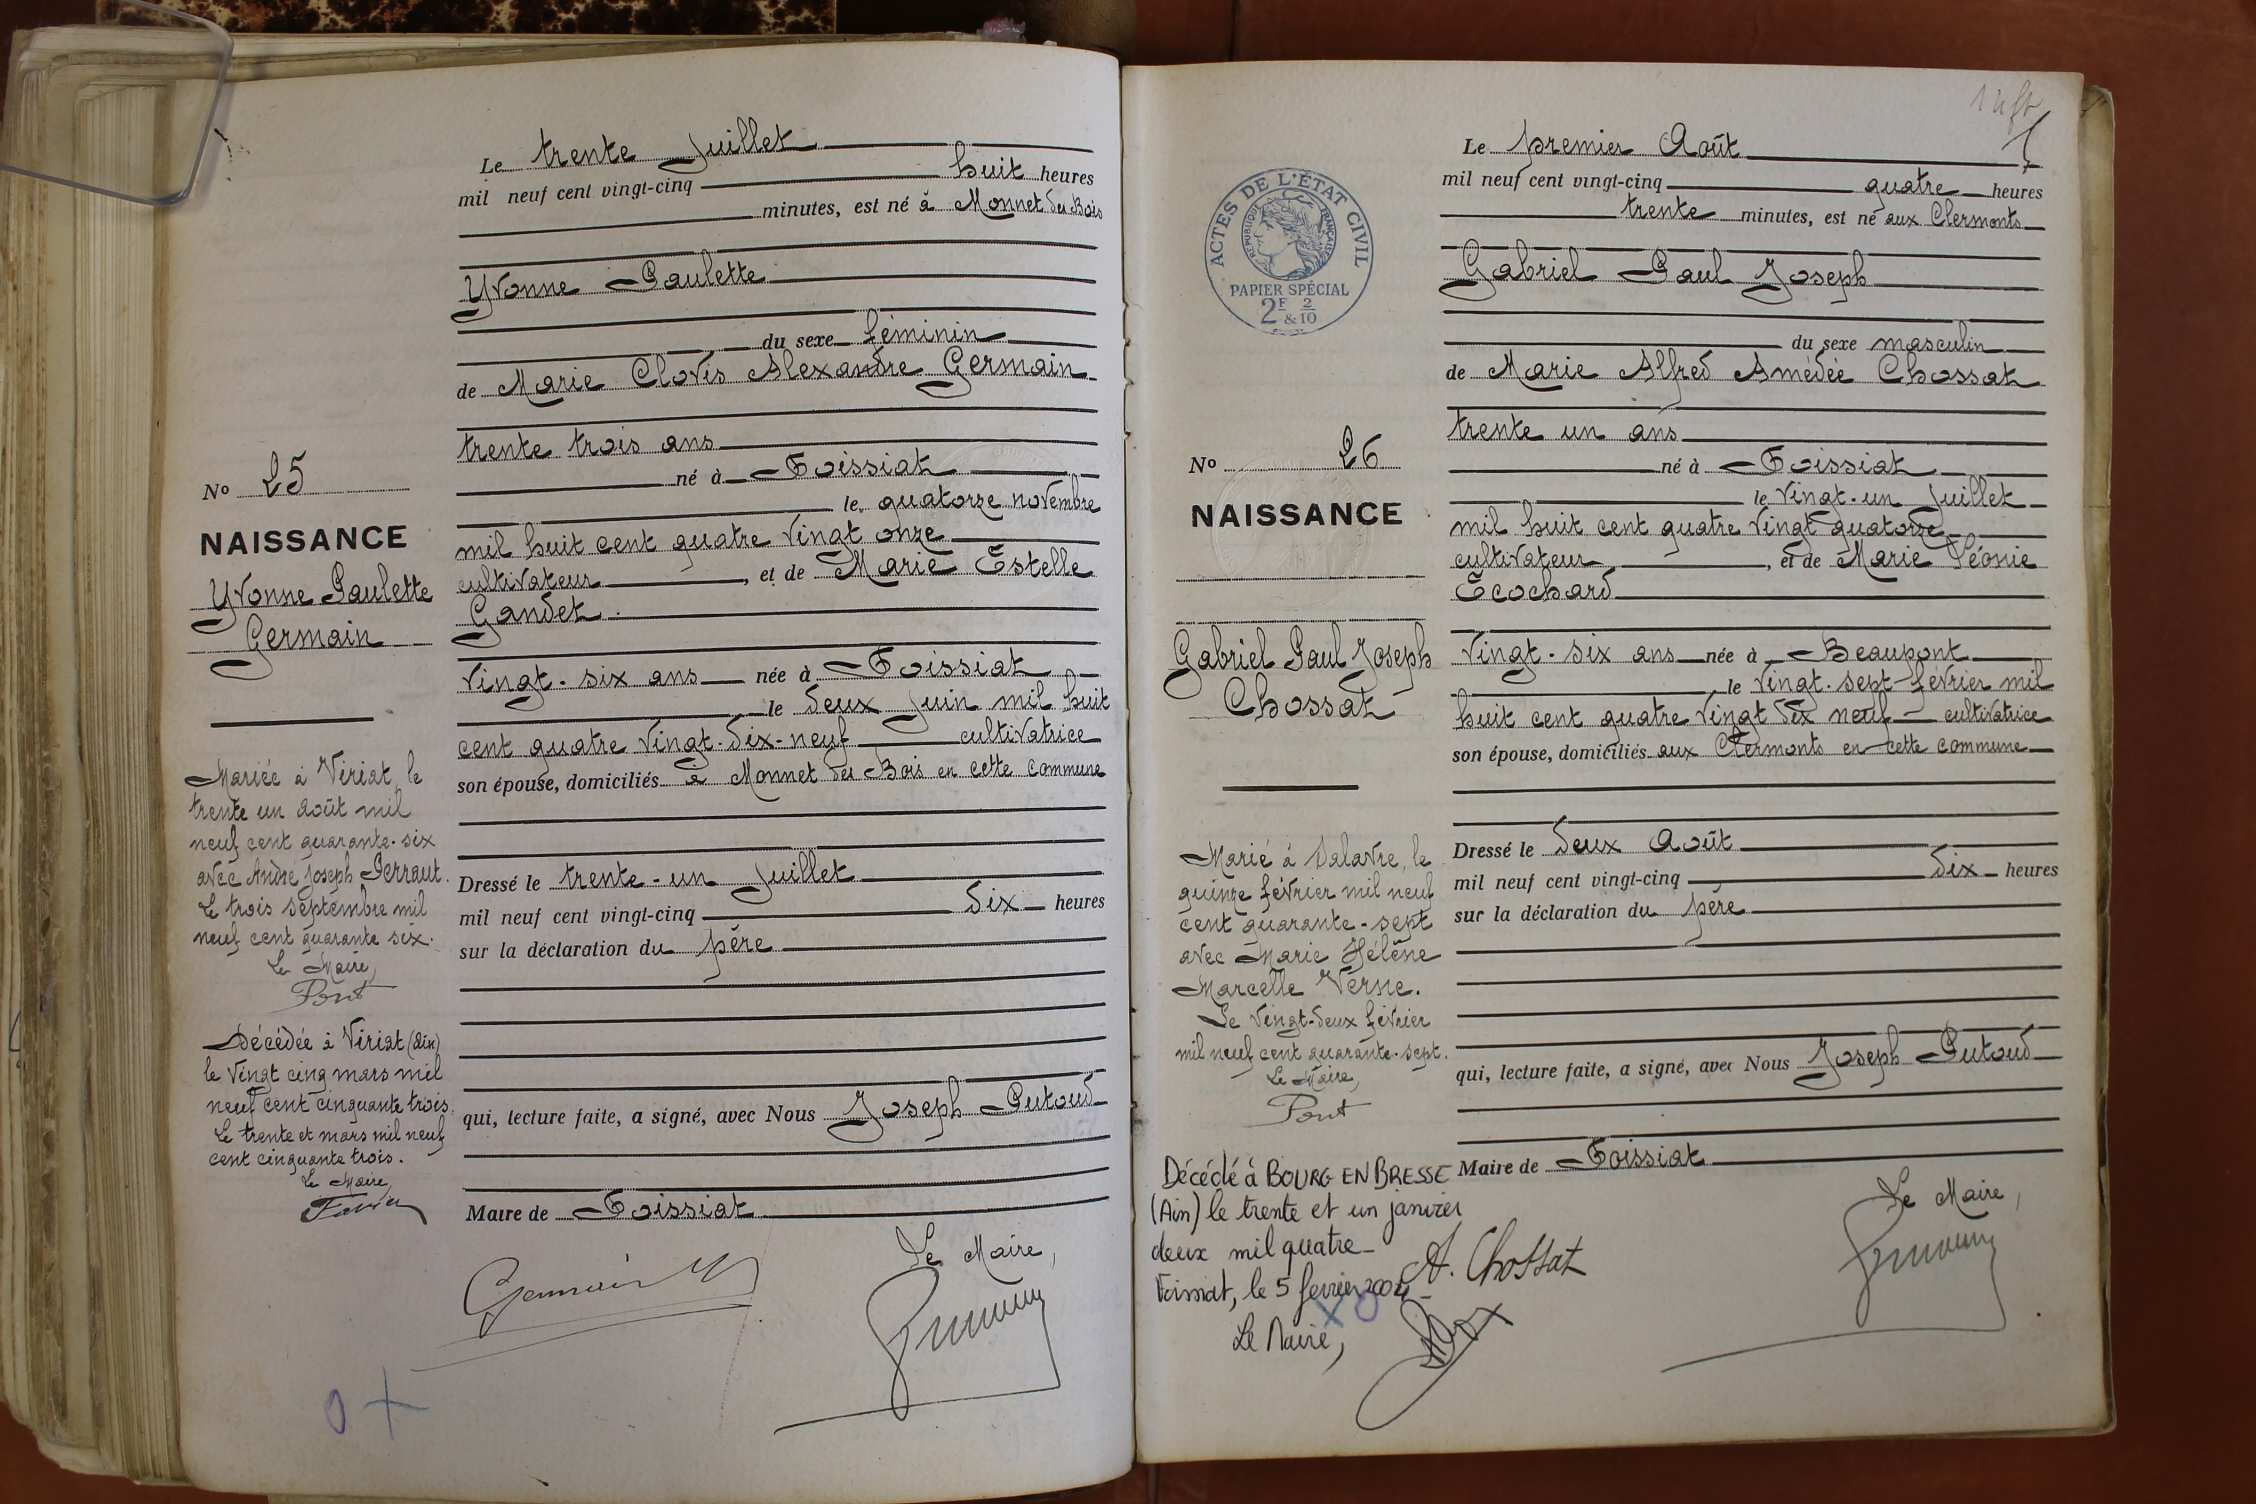 Le trente Juillet
mil neuf cent vingt-cinq huit heures
minutes, est né à Monnet des Bois
Yvonne Paulette
du sexe féminin
de Marie Clovis Alexandre Germain
trente trois ans
né à Foissiat
le quatorze novembre
mil huit cent quatre vingt onze
cultivateur, et de Marie Estelle
Gandet
vingt-six ans née à Foissiat
le deux Juin mil huit
cent quatre vingt-dix-neuf cultivatrice
son épouse, domiciliés à Monnet des Bois en cette commune
Dressé le trente-un Juillet
mil neuf cent vingt-cinq dix heures
sur la déclaration du père
qui, lecture faite, a signé, avec Nous Joseph Putoud
Maire de Foissiat
Le Maire,
Germain
No 25
NAISSANCE
Yvonne Paulette
Germain
Mariée à Viriat, le
trente un août mil
neuf cent quarante-six
avec André Joseph Perraut.
Le trois septembre mil
neuf cent quarante six.
Le Maire,
Pont
Décédée à Viriat (Ain)
le vingt cinq mars mil
neuf cent cinquante trois.
Le trente et mars mil neuf
cent cinquante trois.
Le Maire
0 +
Le premier Août
mil neuf cent vingt-cinq quatre heures
trente minutes, est né aux Clermonts
Gabriel Paul Joseph
du sexe masculin
de Marie Alfred Amédée Chossat
trente un ans
né à Foissiat
le vingt-un Juillet
mil huit cent quatre vingt quatorze
cultivateur, et de Marie Léonie
Ecochard
vingt-six ans née à Beaupont
le vingt-sept février mil
huit cent quatre vingt dix neuf cultivatrice
son épouse, domiciliés aux Clermonts en cette commune
Dressé le deux Août
mil neuf cent vingt-cinq dix heures
sur la déclaration du père
qui, lecture faite, a signé, avec Nous Joseph Putoud
Maire de Foissiat
Le Maire,
A. Chossat
ACTES DE L'ÉTAT CIVIL
RÉPUBLIQUE FRANÇAISE
PAPIER SPÉCIAL
2F & 2/10
No 26
NAISSANCE
Gabriel Paul Joseph
Chossat
Marié à Salavre, le
quinze février mil neuf
cent quarante-sept
avec Marie Hélène
Marcelle Verne.
Le vingt-deux février
mil neuf cent quarante-sept.
Le Maire,
Pont
Décédé à BOURG EN BRESSE
(Ain) le trente et un janvier
deux mil quatre
Foissiat, le 5 février 2004
Le Maire,
X O